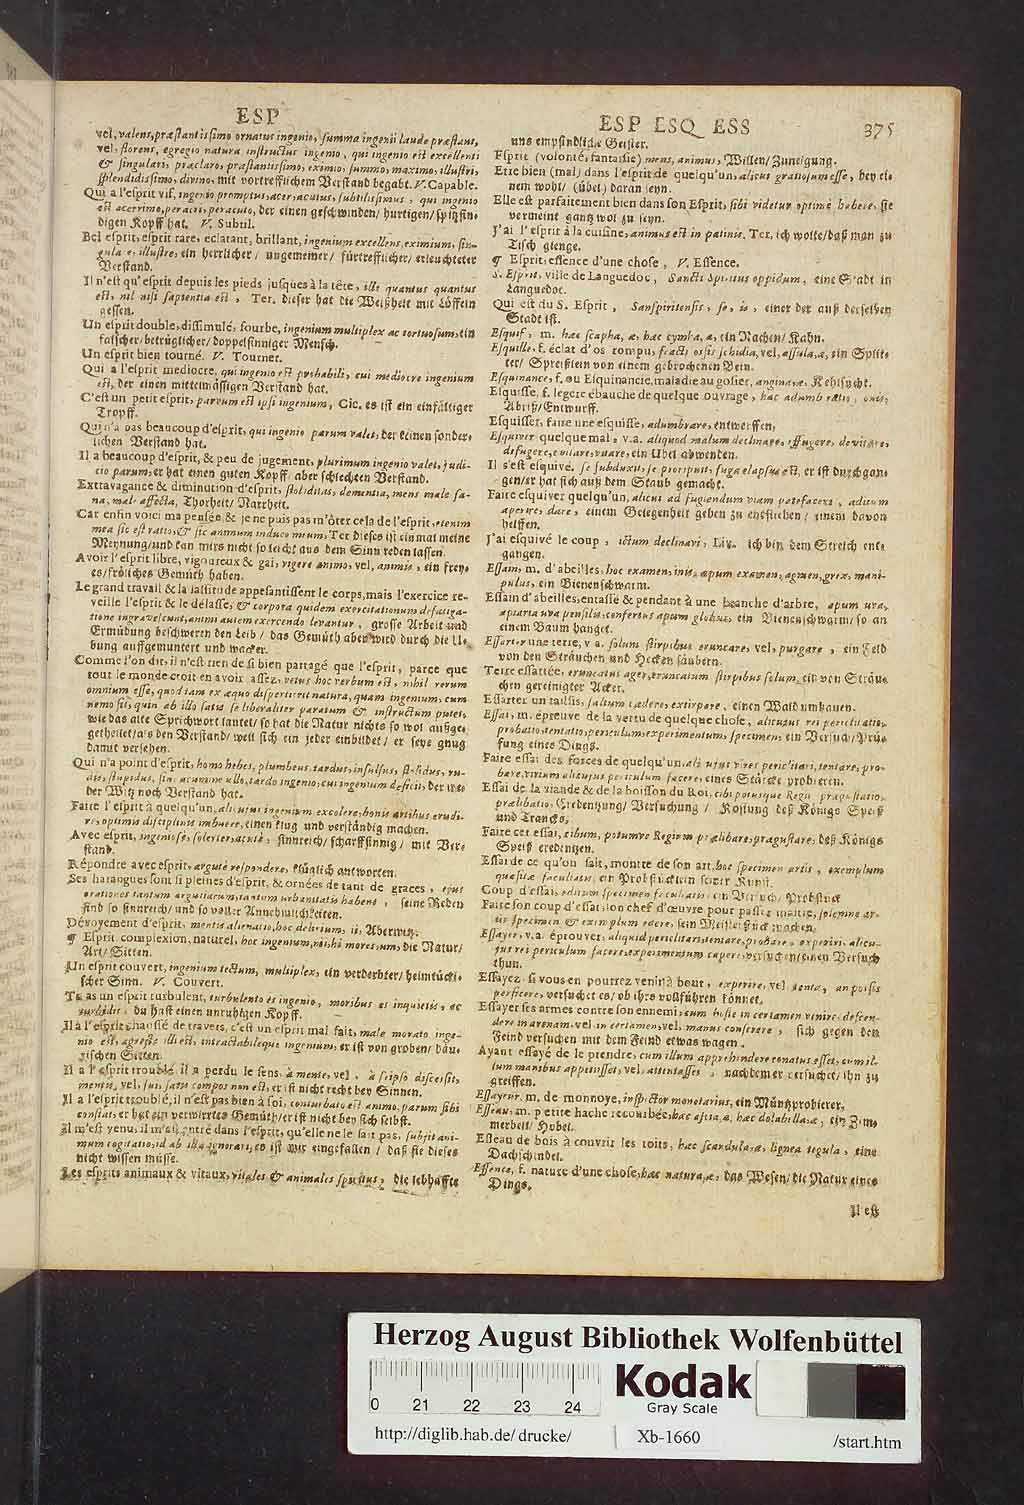 ESP
vel, valens, præstantissimo ornatus ingenio, summa ingenii laude præstans,
vel, florens, egregio natura instructus ingenio, qui ingenio est excellenti
& singulari, præclaro, præstantissimo, eximio, summo, maximo, illustri,
splendidissimo, divino, mit vortrefflichem Verstand begabt. V. Capable.
Qui a l'esprit vif, ingenio promptus, acer, acutus, subtilissimus, qui ingenio
est acerrimo, peracri, peracuto, der einen geschwinden/ hurtigen/ spitzfin-
digen Kopff hat. V. Subtil.
Bel esprit, esprit rare, éclatant, brillant, ingenium excellens, eximium, sin-
gulare, illustre, ein herrlicher/ ungemeiner/ fürtrefflicher/ erleuchteter
Verstand.
Il n'est qu'esprit depuis les pieds jusques à la tête, ille quantus quantus
est, nil nisi sapientia est, Ter. dieser hat die Weißheit mit Löffeln
gessen.
Un esprit double, dissimulé, fourbe, ingenium multiplex ac tortuosum, ein
falscher/ betrüglicher/ doppelsinniger Mensch.
Un esprit bien tourné. V. Tourner.
Qui a l'esprit mediocre, qui ingenio est probabili, cui mediocre ingenium
est, der einen mittelmässigen Verstand hat.
C'est un petit esprit, parvum est ipsi ingenium, Cic. es ist ein einfältiger
Tropff.
Qui n'a pas beaucoup d'esprit, qui ingenio parum valet, der keinen sonder-
lichen Verstand hat.
Il a beaucoup d'esprit, & peu de jugement, plurimum ingenio valet, judi-
cio parum, er hat einen guten Kopff/ aber schlechten Verstand.
Extravagance & diminution d'esprit, stoliditas, dementia, mens male sa-
na, mal- affecta, Thorheit/ Narrheit.
Car enfin voici ma pensée & je ne puis pas m'ôter cela de l'esprit, etenim
mea sic est ratio, & sic animum induco meum, Ter. Dieses ist einmal meine
Meynung/ und kan mirs nicht so leicht aus dem Sinn reden lassen.
Avoir l'esprit libre, vigoureux & gai, vigere animo, vel, animis, ein frey-
es/ fröliches Gemüth haben.
Le grand travail & la lassitude appesantissent le corps, mais l'exercice re-
veille l'esprit & le délasse, & corpora quidem exercitationum defatiga-
tione ingravescunt, animi autem exercendo levantur, grosse Arbeit und
Ermüdung beschweren den Leib/ das Gemüth aber wird durch die U-
bung auffgemuntert und wacker.
Comme l'on dit, il n'est rien de si bien partagé que l'esprit, parce que
tout le monde croit en avoir assez, vetus hoc verbum est, nihil rerum
omnium esse, quod tam ex æquo dispertierit natura, quam ingenium, cum
nemo sit, quin ab illo satis se liberaliter paratum & instructum putet,
wie das alte Sprichwort lautet/ so hat die Natur nichts so wol außge-
getheilet/ als den Verstand/ weil sich ein jeder einbildet/ er seye gnug
damit versehen.
Qui n'a point d'esprit, homo hebes, plumbeus, tardus, insulsus, stolidus, ru-
dis, stupidus, sine acumine ullo, tardo ingenio, cui ingenium deficit, der we-
der Witz noch Verstand hat.
Faire l'esprit à quelqu'un, alicujus ingenium excolere, bonis artibus erudi-
re, optimis disciplinis imbuere, einen klug und verständig machen.
Avec esprit, ingeniose, solerter, acute, sinnreich/ scharffsinnig/ mit Ver-
stand.
Répondre avec esprit, argute respondere, klüglich antworten.
Ses harangues sont si pleines d'esprit, & ornées de tant de graces, ejus
orationes tantum argutiarum, tantum urbanitatis habent, seine Reden
sind so sinnreich/ und so voller Annehmlichkeiten.
Dévoyement d'esprit, mentis alienatio, hoc delirium, ii, Aberwitz.
¶ Esprit complexion, naturel, hoc ingenium, nii, hi mores, um, die Natur/
Art/ Sitten.
Un esprit couvert, ingenium tectum, multiplex, ein verdeckter/ heimtücki-
scher Sinn. V. Couvert.
Tu as un esprit turbulent, turbulento es ingenio, moribus es inquietis, ac
turbidis, du hast einen unruhigen Kopff.
Il a l'esprit chaussé de travers, c'est un esprit mal fait, male morato inge-
nio est, agreste illi est, intractabileque ingenium, er ist von groben/ bäu-
rischen Sitten.
Il a l'esprit troublé, il a perdu le sens, à mente, vel, à seipso discessit,
mentis, vel, sui, satis compos non est, er ist nicht recht bey Sinnen.
Il a l'esprit troublé, il n'est pas bien à soi, conturbato est animo, parum sibi
constat, er hat ein verwirrtes Gemüth/ er ist nicht bey sich selbst.
Il m'est venu, il m'est entré dans l'esprit, qu'elle ne le fait pas, subiit ani-
mum cogitatio, id ab illa ignorari, es ist mir eingefallen/ daß sie dieses
nicht wissen müsse.
Les esprits animaux & vitaux, vitales & animales spiritus, die lebhaffte
ESP ESQ ESS 375
und empfindliche Geister.
Esprit (volonté, fantasie) mens, animus, Willen/ Zuneigung.
Etre bien (mal) dans l'esprit de quelqu'un, alicui gratiosum esse, bey ei-
nem wohl/ (übel) daran seyn.
Elle est parfaitement bien dans son Esprit, sibi videtur optime habere, sie
vermeint gantz wol zu seyn.
J'ai l'esprit à la cuisine, animus est in patinis. Ter. ich wolte/ daß man zu
Tisch gienge.
¶ Esprit, essence d'une chose, V. Essence.
S. Esprit, ville de Languedoc, Sancti Spiritus oppidum, eine Stadt in
Languedoc.
Qui est du S. Esprit, Sanspiritensis, se, is, einer der auß derselben
Stadt ist.
Esquif, m. hæc scapha, æ, hæc cymba, æ, ein Nachen/ Kahn.
Esquille, f. éclat d'os rompu, fracti ossis schidia, vel, assula, æ, ein Split-
ter/ Spreißlein von einem gebrochenen Bein.
Esquinance, f. ou Esquinancie, maladie au gosier, angina, æ, Kehlsucht.
Esquisse, f. legere ébauche de quelque ouvrage, hæc adumbratio, onis,
Abriß/ Entwurff.
Esquisser, faire une esquisse, adumbrare, entwerffen,
Esquiver quelque mal, v.a. aliquod malum declinare, effugere, devitare,
defugere, evitare, vitare, ein Ubel abwenden.
Il s'est esquivé, se subduxit, se proripuit, fuga elapsus est, er ist durchgan-
gen/ er hat sich auß dem Staub gemacht.
Faire esquiver quelqu'un, alicui ad fugiendum viam patefacere, aditum
aperire, dare, einem Gelegenheit geben zu entfliehen/ einem davon
helffen.
J'ai esquivé le coup, ictum declinavi, Liv. ich bin dem Streich ent-
gangen.
Essaim, m. d'abeilles, hoc examen, inis, apum examen, agmen, grex, mani-
pulus, ein Bienenschwarm.
Essaim d'abeilles, entassé & pendant à une branche d'arbre, apum uva,
aptaria uva pensilis, confertus apum globus, ein Bienenschwarm/ so an
einem Baum hanget.
Essarter une terre, v. a. solum stirpibus eruncare, vel, purgare, ein Feld
von den Sträuchen und Hecken säubern.
Terre essartée, eruncatus ager, eruncatum stirpibus solum, ein von Sträu-
chen gereinigter Acker.
Essarter un taillis, saltum cædere, extirpare, einen Wald umhauen.
Essai, m. épreuve de la vertu de quelque chose, alicujus rei periclitatio,
probatio, tentatio, periculum, experimentum, specimen, ein Versuch/ Prü-
fung eines Dings.
Faire essai des forces de quelqu'un, alicujus vires periclitari, tentare, pro-
bare, virium alicujus periculum facere, eines Stärcke probieren.
Essai de la viande & de la boisson du Roi, cibi potusque Regii prægustatio,
prælibatio, Credentzung/ Versuchung/ Kostung deß Königs Speiß
und Trancks,
Faire cet essai, cibum, potumve Regium prælibare, prægustare, deß Königs
Speiß credentzen.
Essai de ce qu'on fait, montre de son art, hoc specimen artis, exemplum
quæsitæ facultatis, ein Probstücklein seiner Kunst.
Coup d'essai, editum specimen facultatis, ein Versuch/ Probstück
Faire son coup d'essai, son chef d'œuvre pour passer maitre, solemne ar-
tis specimen & exemplum edere, sein Meisterstück machen.
Essayer, v.a. éprouver, aliquid periclitari, tentare, probare, experiri, alicu-
jus rei periculum facere, experimentum capere, versuchen/ einen Versuch
thun.
Essayez, si vous en pourrez venir à bout, experire, vel, tenta, an possis
perficere, versuchet es/ ob ihrs vollführen könnet,
Essayer ses armes contre son ennemi, cum hoste in certamen venire, descen-
dere in arenam, vel, in certamen, vel, manus conserere, sich gegen den
Feind versuchen/ mit dem Feind etwas wagen.
Ayant essayé de le prendre, cum illum apprehendere conatus esset, cum il-
lum manibus appetiisset, vel, attentasset, nachdem er versuchet/ ihn zu
greiffen.
Essayeur, m. de monnoye, inspector monetarius, ein Müntzprobierer,
Esseau, m. petite hache recourbée, hæc ascia, æ, hæc dolabella, æ, ein Zim-
merbeil/ Hobel.
Esseau de bois à couvrir les toits, hæc scandula, æ, lignea tegula, eine
Dachschindel.
Essence, f. nature d'une chose, hæc natura, æ, das Wesen/ die Natur eines
Dings.
Herzog August Bibliothek Wolfenbüttel
Kodak
Gray Scale
0 21 22 23 24
http://diglib.hab.de/drucke/ Xb-1660 /start.htm